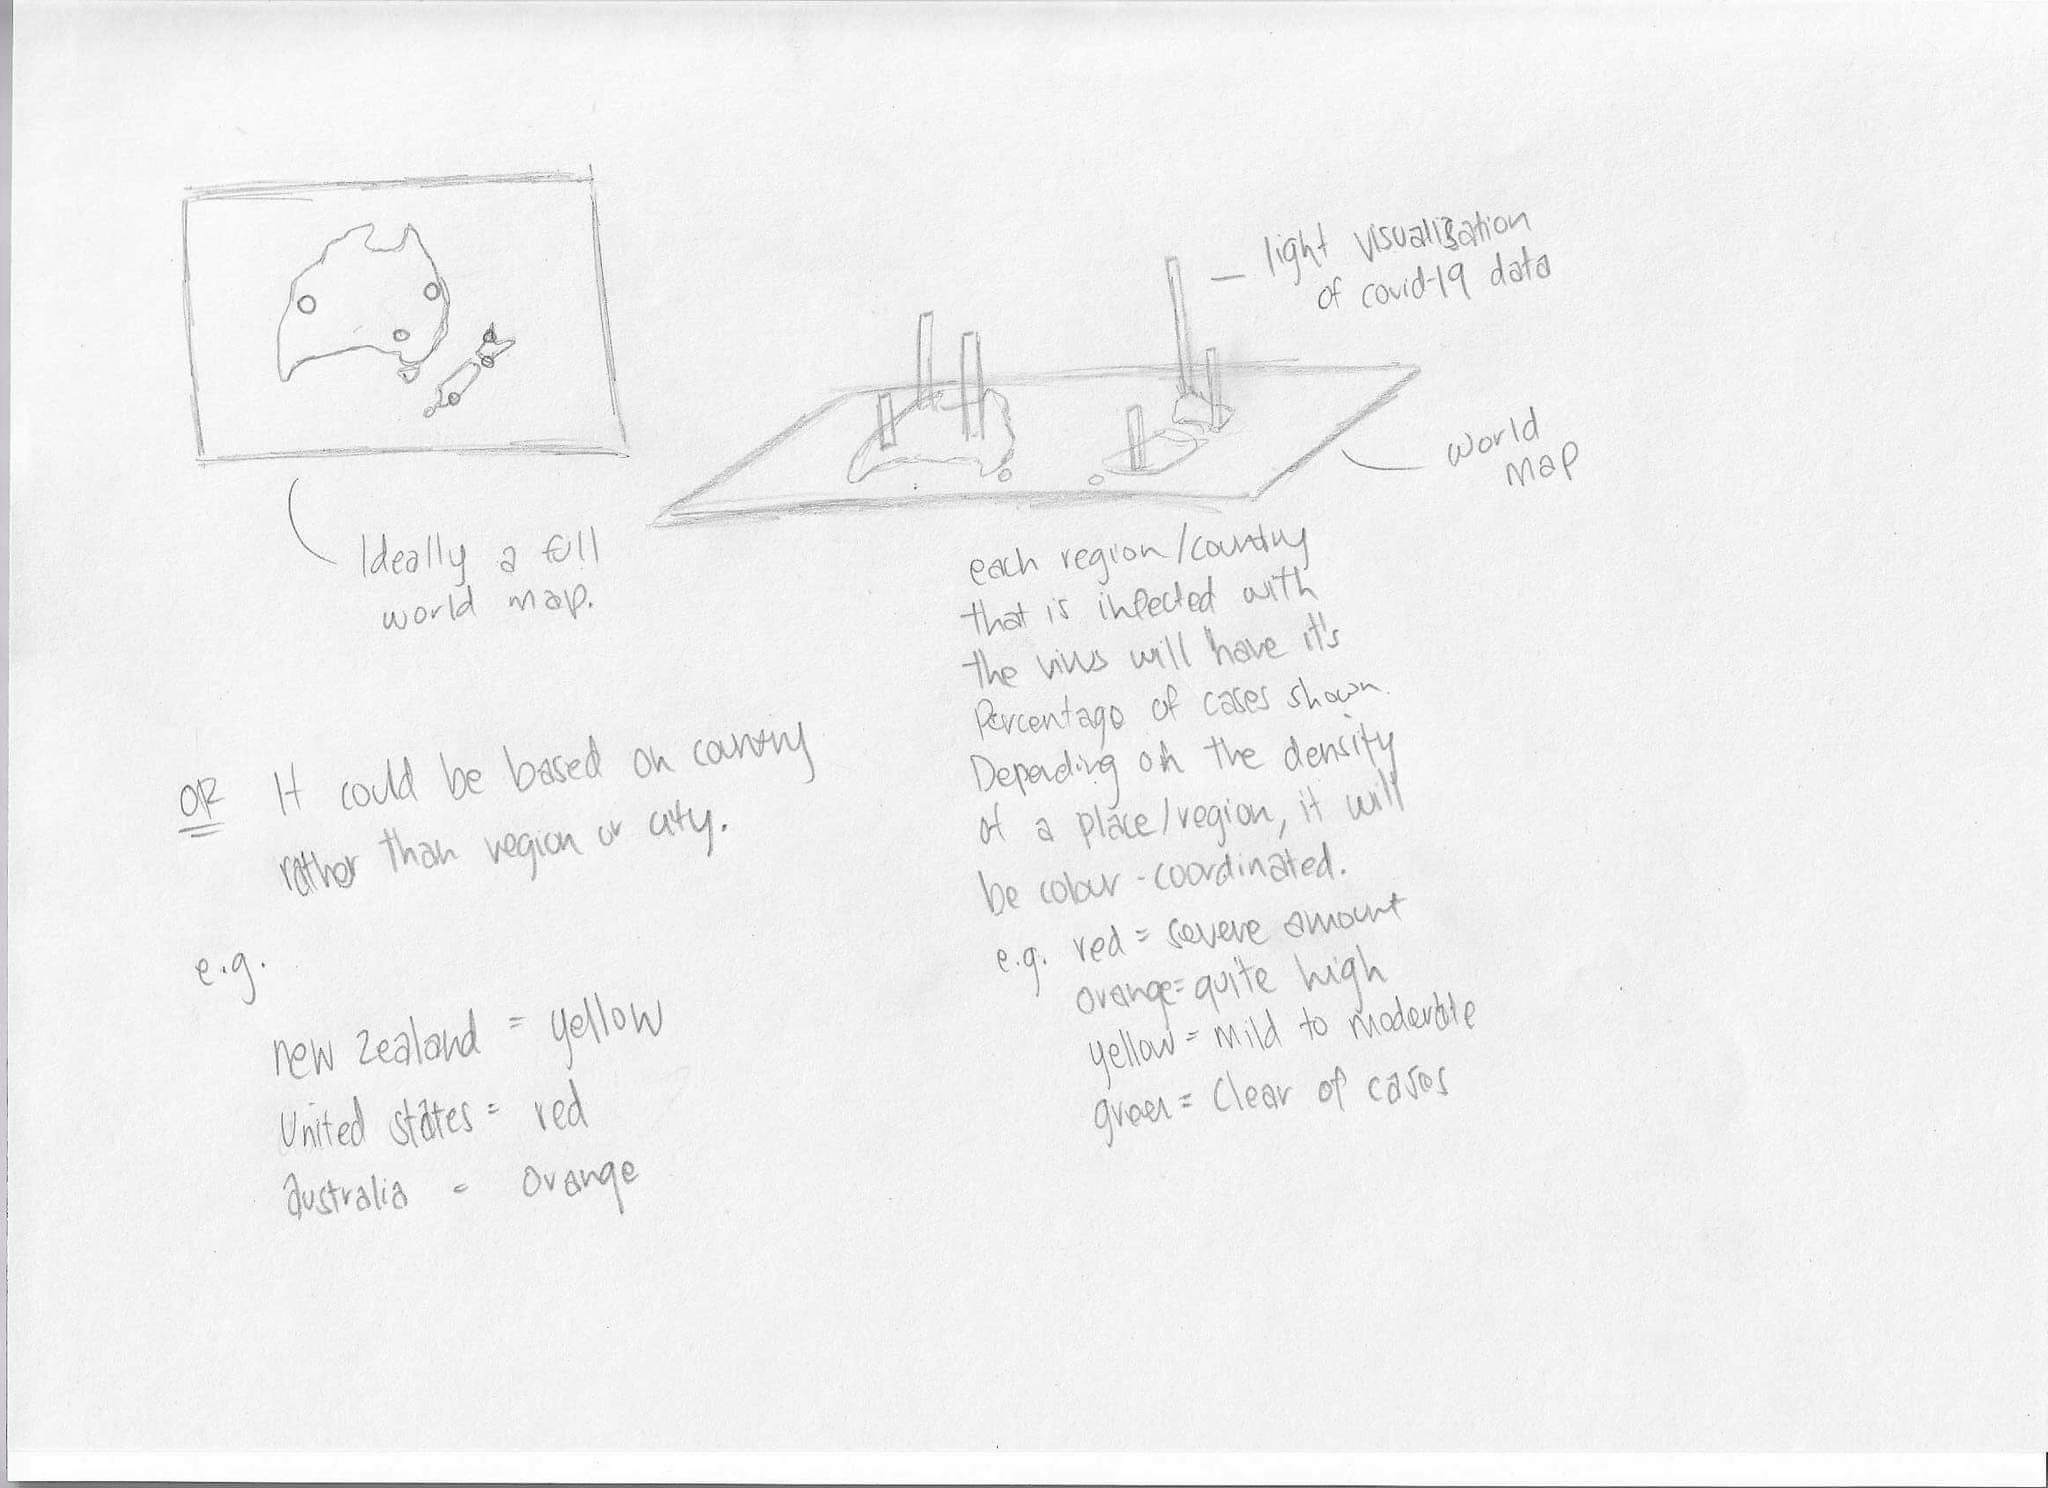 light visualisation
of covid-19 data
world
map
Ideally a full
world map.
each region/country
that is infected with
the virus will have it's
Percentage of cases shown.
Depending on the density
of a place/region, it will
be colour-coordinated.
e.g. red = severe amount
orange = quite high
yellow = mild to moderate
green = clear of cases
OR It could be based on country
rather than region or city.
e.g.
new zealand = yellow
United states = red
australia = orange